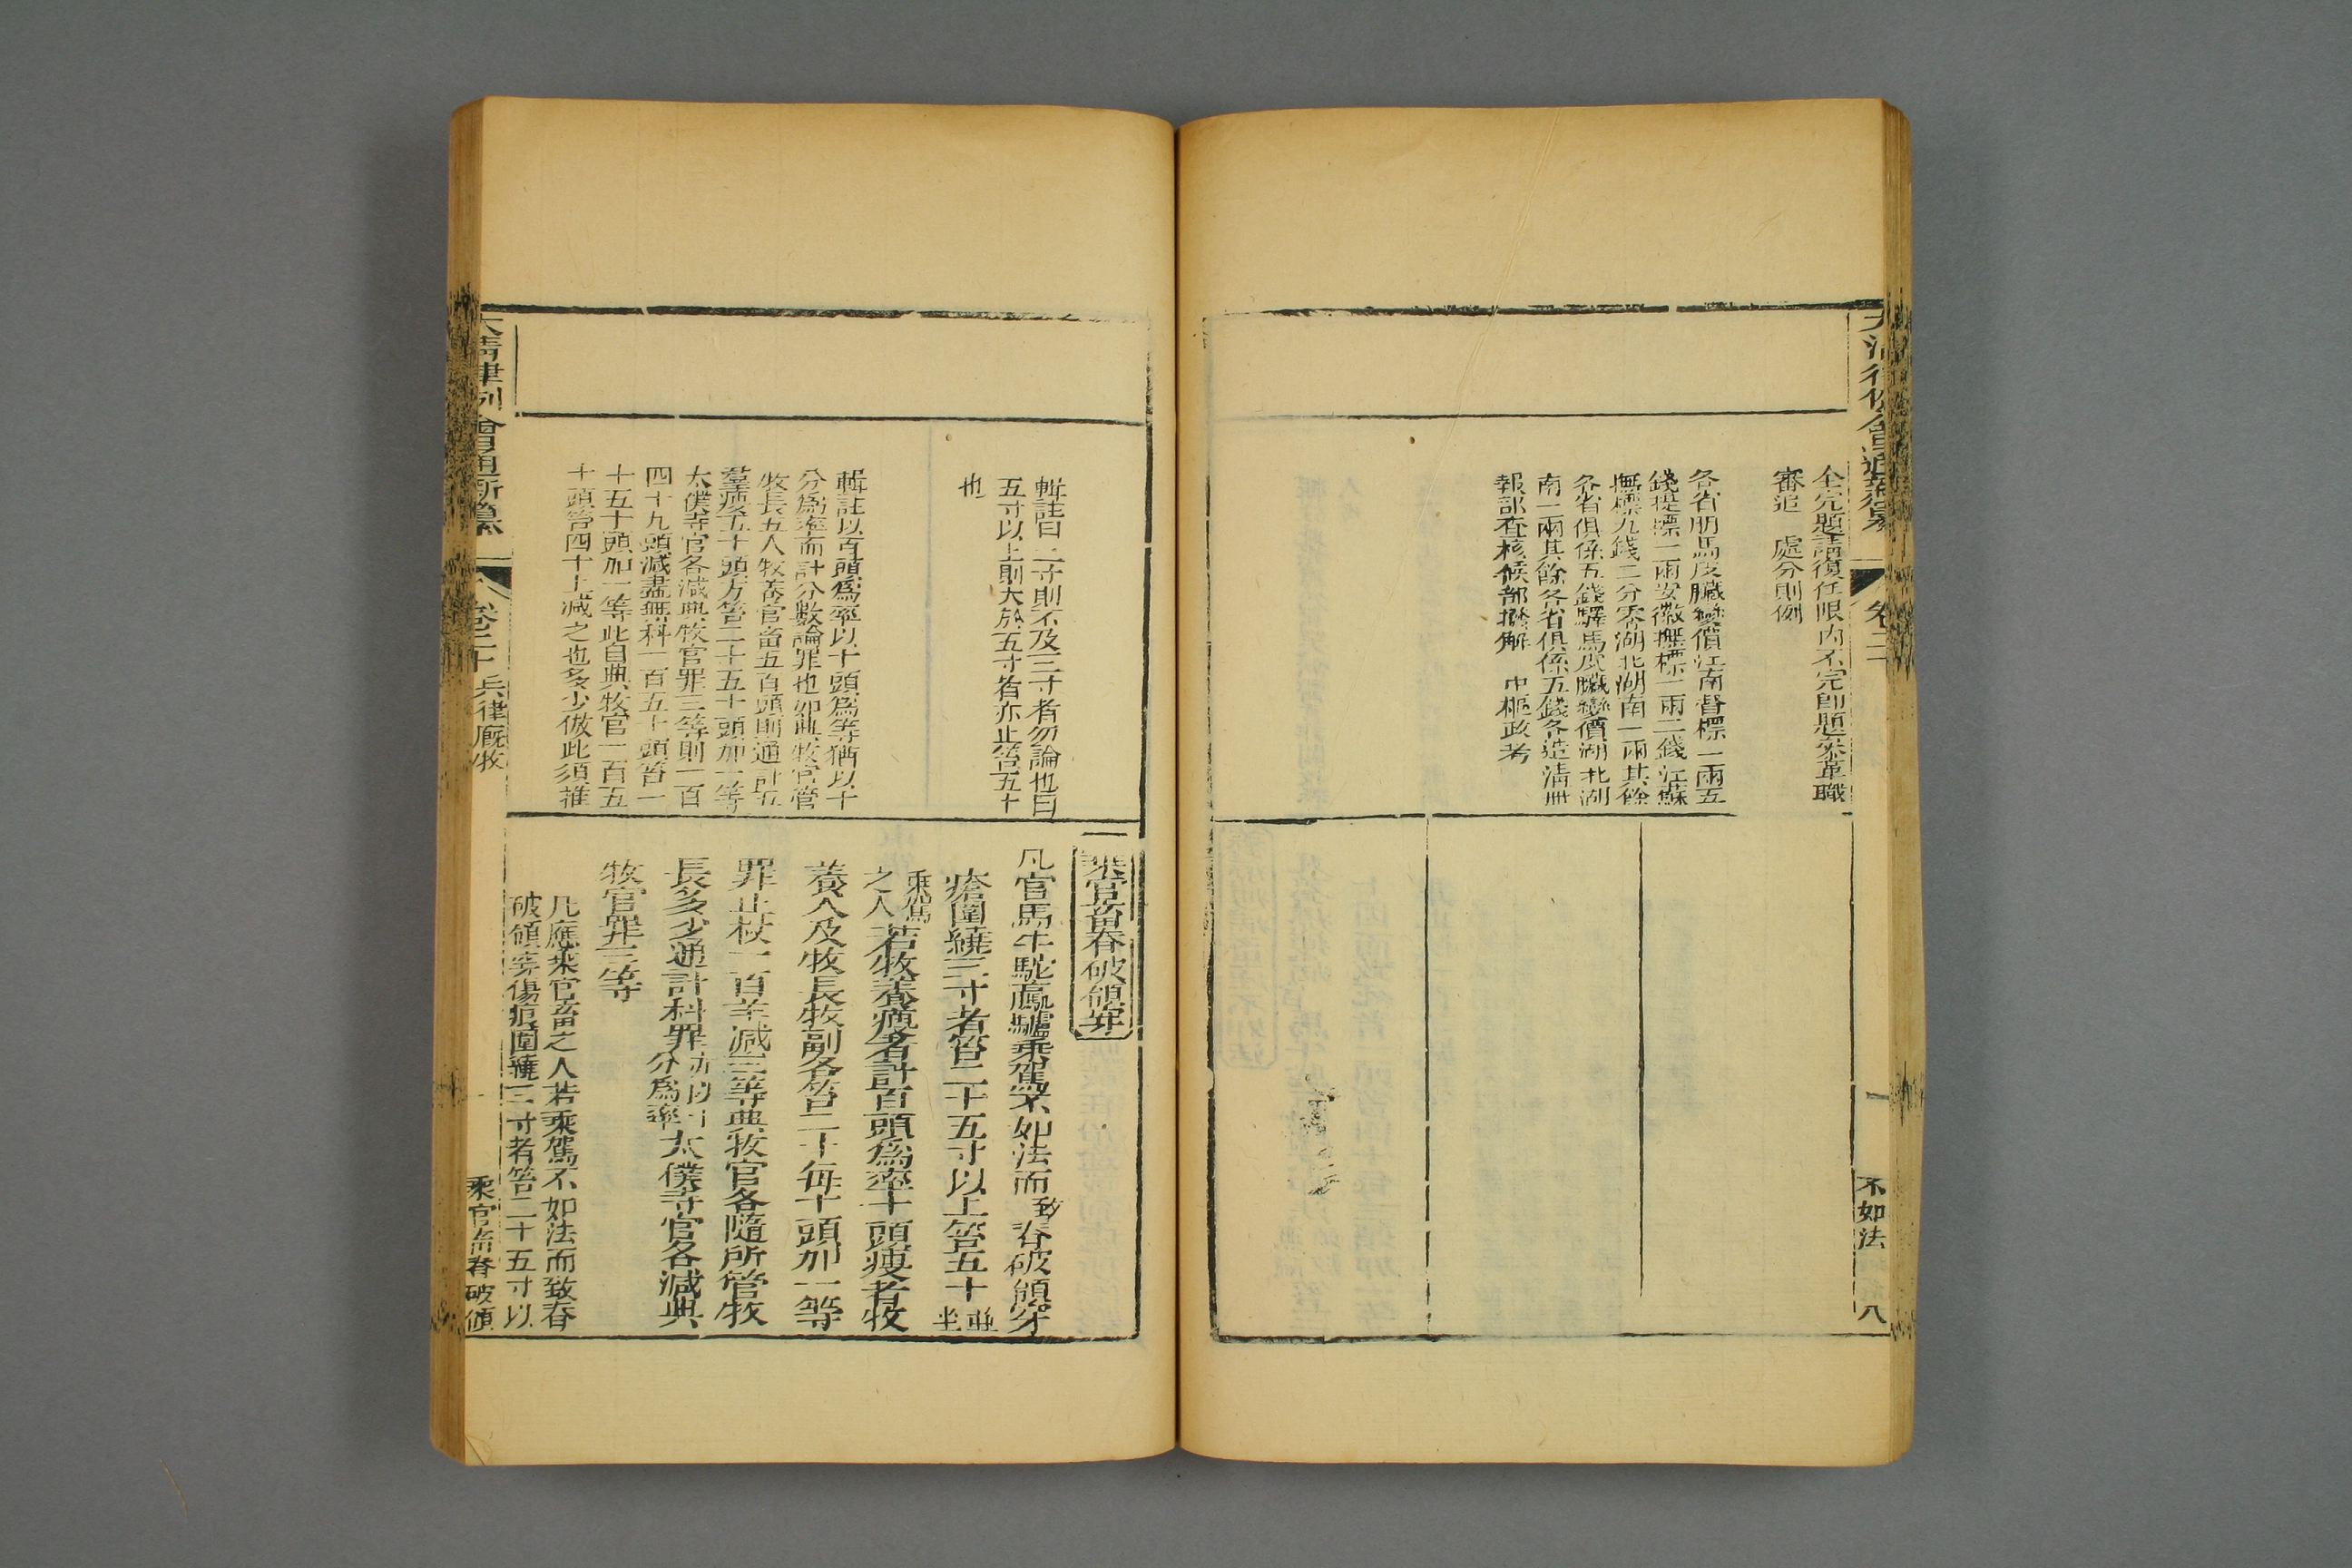 大清律例會通新纂
卷二十
不如法
八
全完題請復任限内不完即題叅革職
審追　處分則例
各省朋馬皮臟變價江南督標一兩五
錢提標一兩安徽撫標一兩二錢江蘇
撫標九錢二分零湖北湖南一兩其餘
各省俱係五錢驛馬皮臟變價湖北湖
南一兩其餘各省俱係五錢各造清冊
報部查核候部撥解　中樞政考
輯註曰二寸則不及三寸者勿論也曰
五寸以上則大於五寸者亦止笞五十
也
輯註以百頭爲率以十頭爲等猶以十
分爲率而計分數論罪也如典牧官管
牧長五人牧養官畜五百頭則通計五
羣瘦五十頭方笞二十五十頭加一等
太僕寺官各減典牧官罪三等則一百
四十九頭減盡無科一百五十頭笞一
十五十頭加一等此自典牧官一百五
十頭笞四十上減之也多少倣此須推
乘官畜脊破領穿
凡官馬牛駝驘驢乘駕不如法而致脊破領穿
瘡圍繞三寸者笞二十五寸以上笞五十並坐
乘駕之人若牧養瘦者計百頭爲率十頭瘦者牧
養人及牧長牧副各笞二十每十頭加一等
罪止杖一百羊減三等典牧官各隨所管牧
長多少通計科罪亦以十分爲率太僕寺官各減典
牧官罪三等
凡應乘官畜之人若乘駕不如法而致脊
破領穿傷瘡圍繞三寸者笞二十五寸以
大清律例會通新纂
卷二十兵律廐牧
乘官畜脊破領